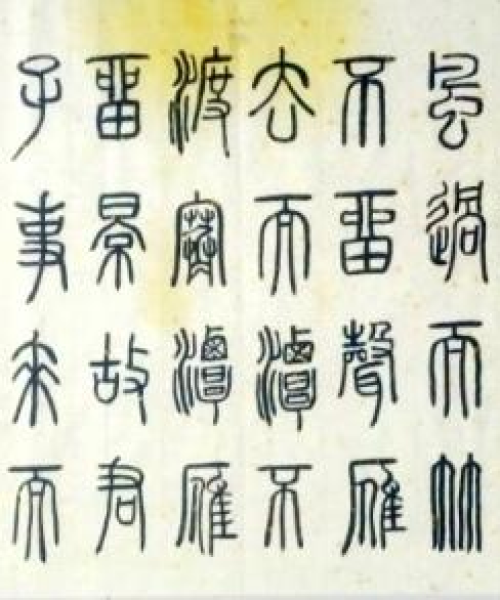 風過而竹
不留聲雁
去而潭不
渡寒潭雁
留景故君
子事來而